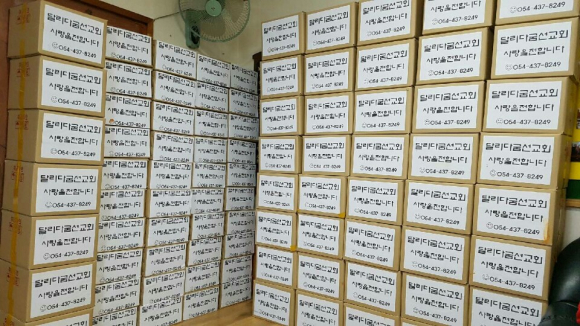 달리다굼선교회
사랑을전합니다
☏054-437-8249